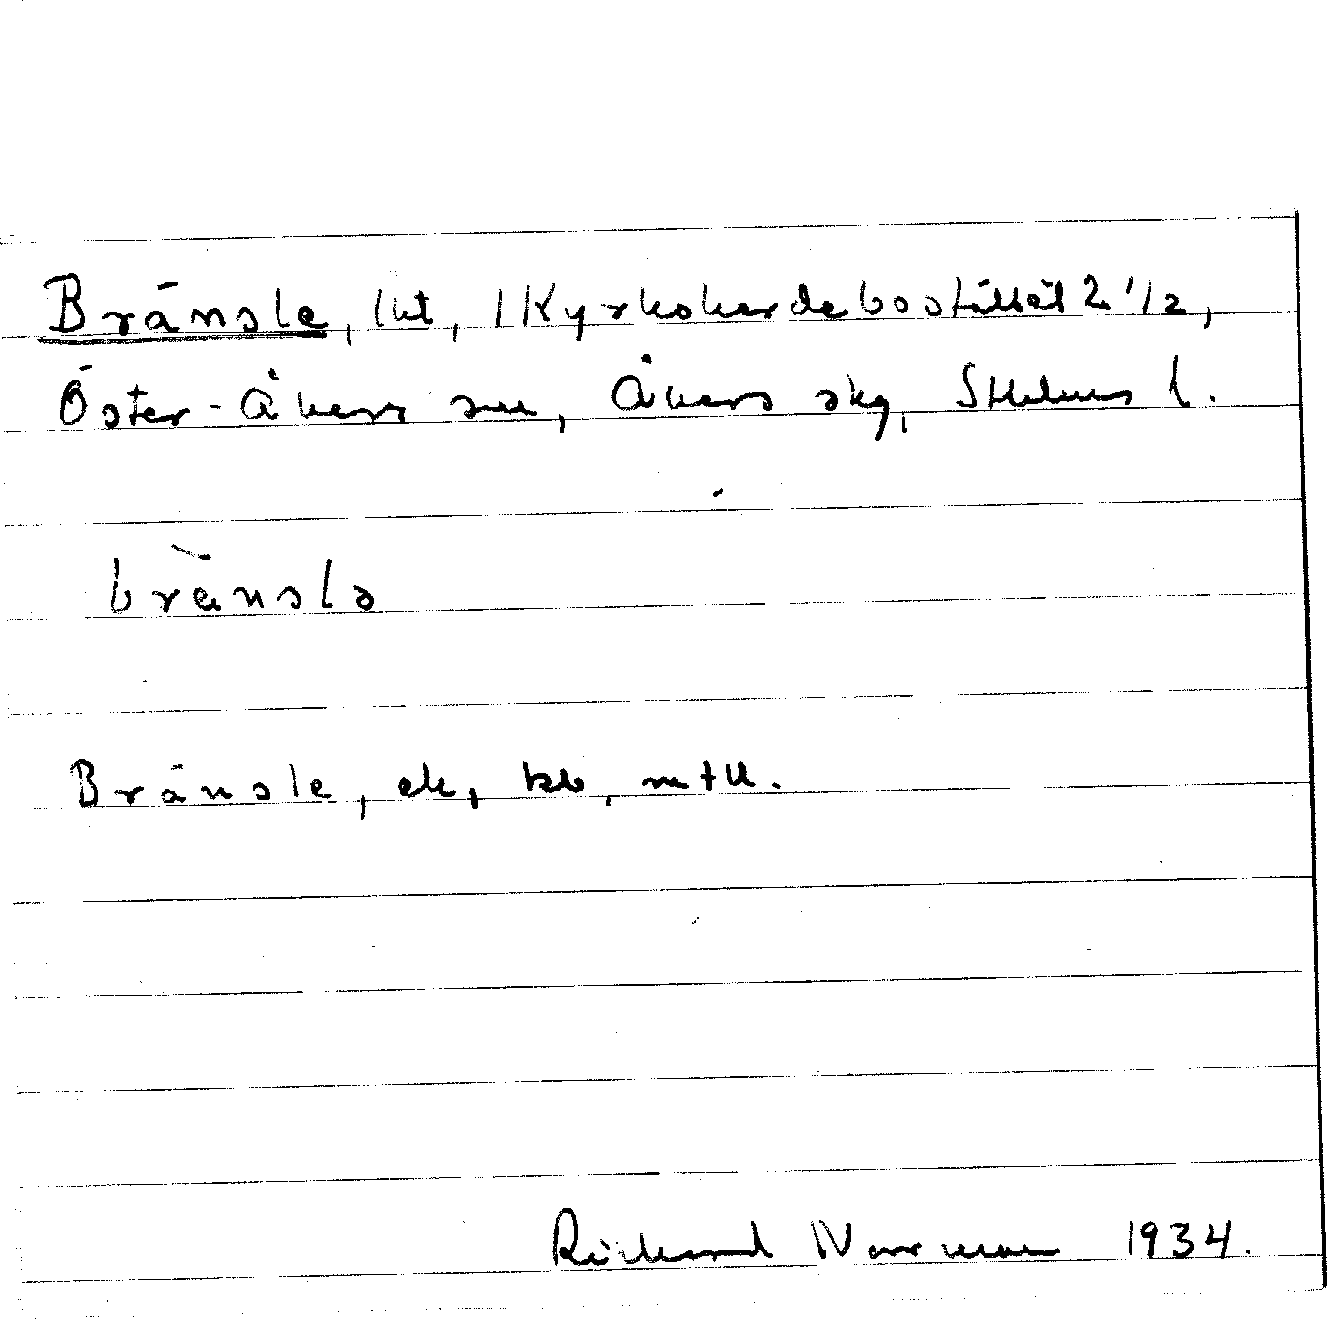 Bränsle, lht, 1 Kyrkoherdebostället 2 1/2,
Öster-Åkers sn, Åkers skg, Sthlms l.
bränslə
Bränsle, ek, kb, mtl.
Rickard Norman 1934.